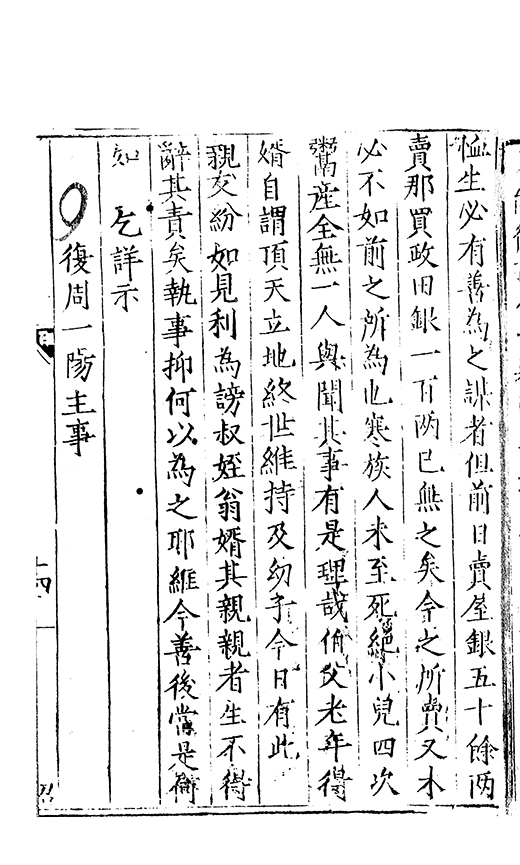 恤生必有善為之謀者但前日賣屋銀五十餘两
賣那買政田銀一百两已無之矣今之所賣又未
必不如前之所為也寒族人未至死絕小兒四次
鬻產全無一人與聞其事有是理哉伯父老年得
婿自謂頂天立地終世維持及幼子今日有此
親友紛如見利為謗叔姪翁婿其親親者生不得
辭其責矣執事抑何以為之耶維今善後當是何
如乞詳示
復周一陽主事
十四